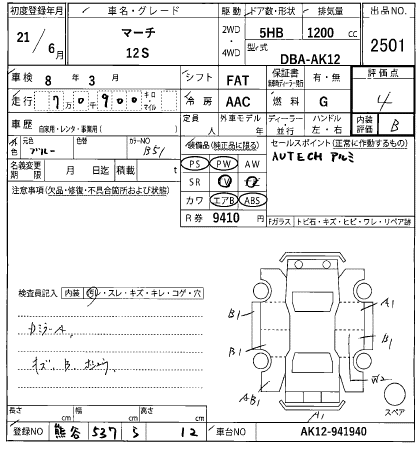 初度登録年月 車名・グレード 駆動 ドア数・形状 排気量 出品NO
21/6月 マーチ 2WD・4WD 5HB 1200 cc 2501
12S 型式 DBA-AK12
車検 8年3月 シフト FAT 保証書 有・無 評価点
走行 7万0千900 キロ・マイル 冷房 AAC 燃料 G 4
車歴 自家用・レンタ・事業用( ) 定員 人 外車モデル 年 ディーラー・並行 ハンドル 左・右 内装評価 B
外色 元色 ブルー 色替 カラーNO B51 装備品(純正品に限る) セールスポイント(正常に作動するもの)
名義変更期限 月 日迄 積載 t PS PW AW AUTECH アルミ
注意事項(欠品・修復・不具合箇所および状態) SR
カワ エアB ABS
R券 9410 円 Fガラス トビ石・キズ・ヒビ・ワレ・リペア跡
検査員記入 内装 汚レ・スレ・キズ・キレ・コゲ・穴
A1
B1
B1
B1
W2
AB1
A1
スペア
長さ cm 幅 cm 高さ cm
登録NO 熊谷 537 ち 12 車台NO AK12-941940